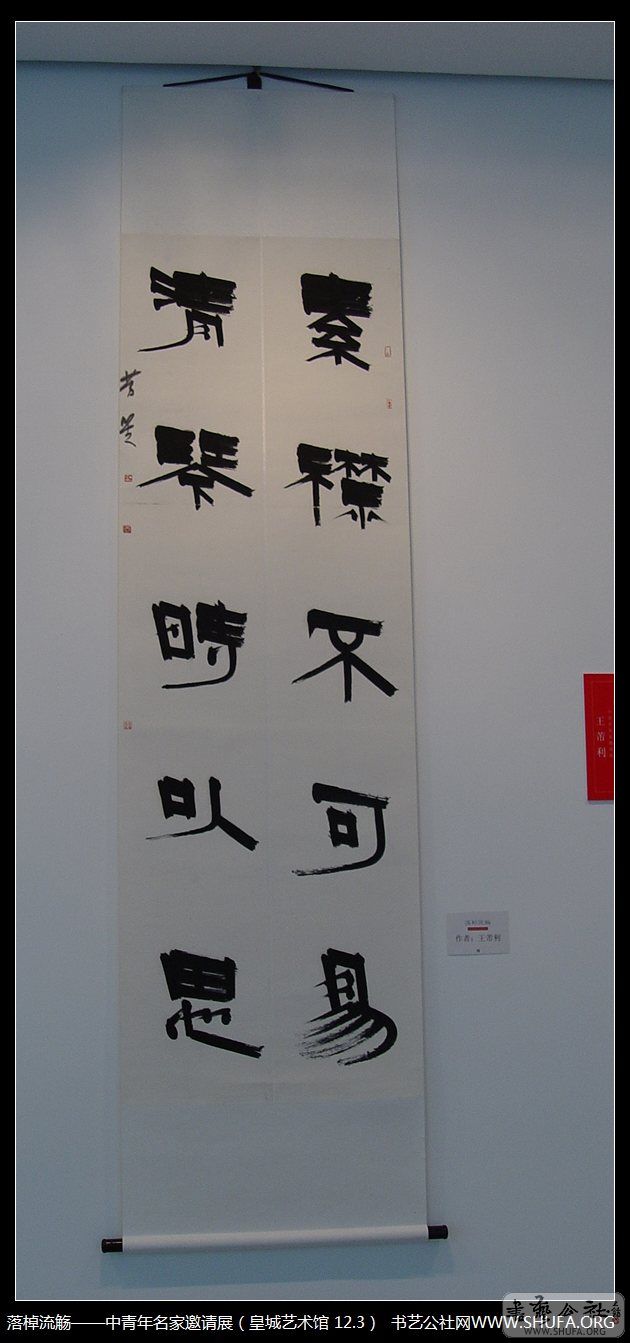 素襟不可易
清琴時以思
落棹流觞
作者：王 利
王 利
書藝公社
WWW.SHUFA.ORG
落棹流觞——中青年名家邀请展（皇城艺术馆 12.3） 书艺公社网WWW.SHUFA.ORG